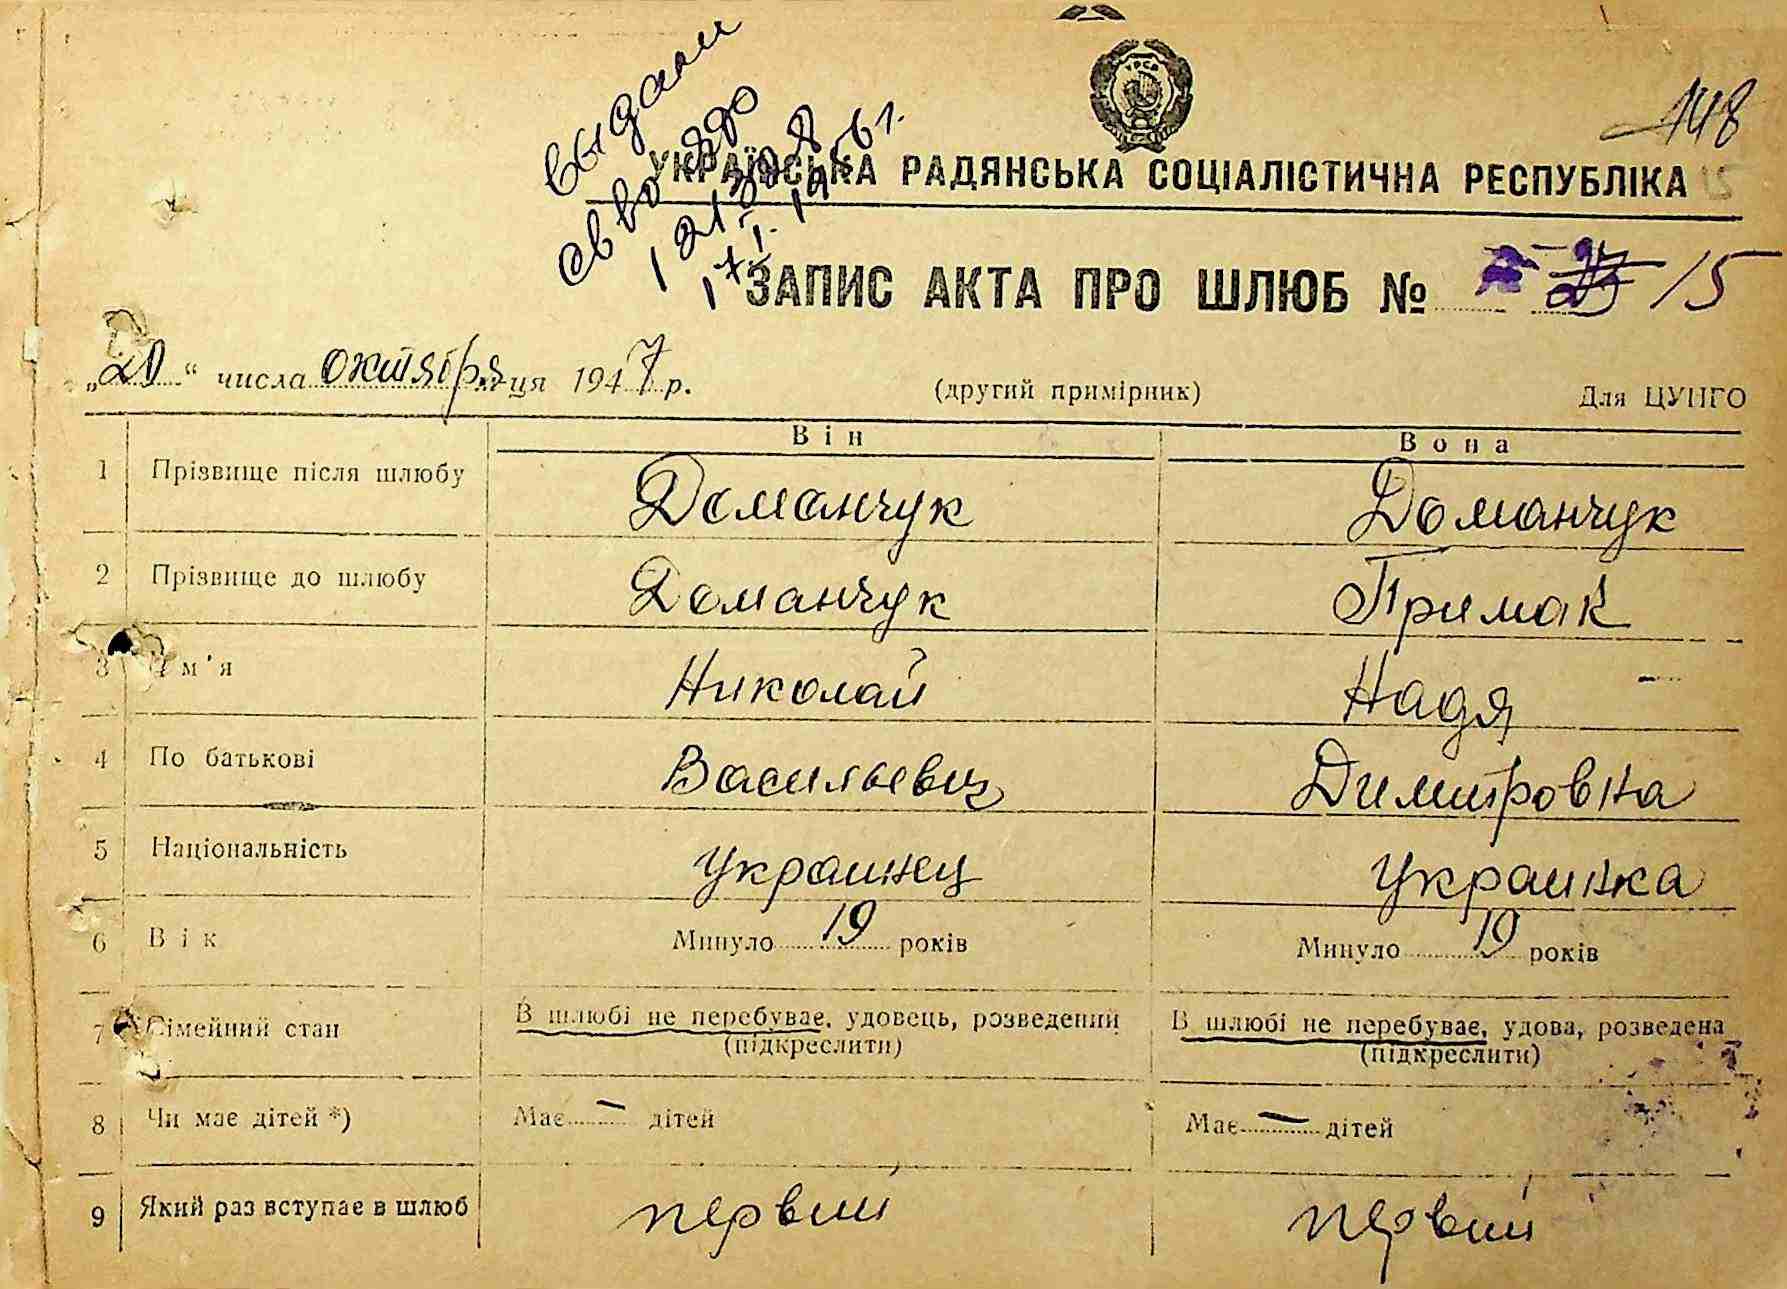 выдали
148
УРСР
УКРАЇНСЬКА РАДЯНСЬКА СОЦІАЛІСТИЧНА РЕСПУБЛІКА
ЗАПИС АКТА ПРО ШЛЮБ № 15
„20“ числа октября ця 1947 р. (другий примірник) Для ЦУНГО
Він Вона
1 Прізвище після шлюбу Доманчук Доманчук
2 Прізвище до шлюбу Доманчук Примак
3 Ім'я Николай Надя
4 По батькові Васильевич Димитровна
5 Національність Украинец Украинка
6 Вік Минуло 19 років Минуло 19 років
7 Сімейний стан В шлюбі не перебуває, удовець, розведений В шлюбі не перебуває, удова, розведена
(підкреслити) (підкреслити)
8 Чи має дітей *) Має — дітей Має — дітей
9 Який раз вступає в шлюб первый первый